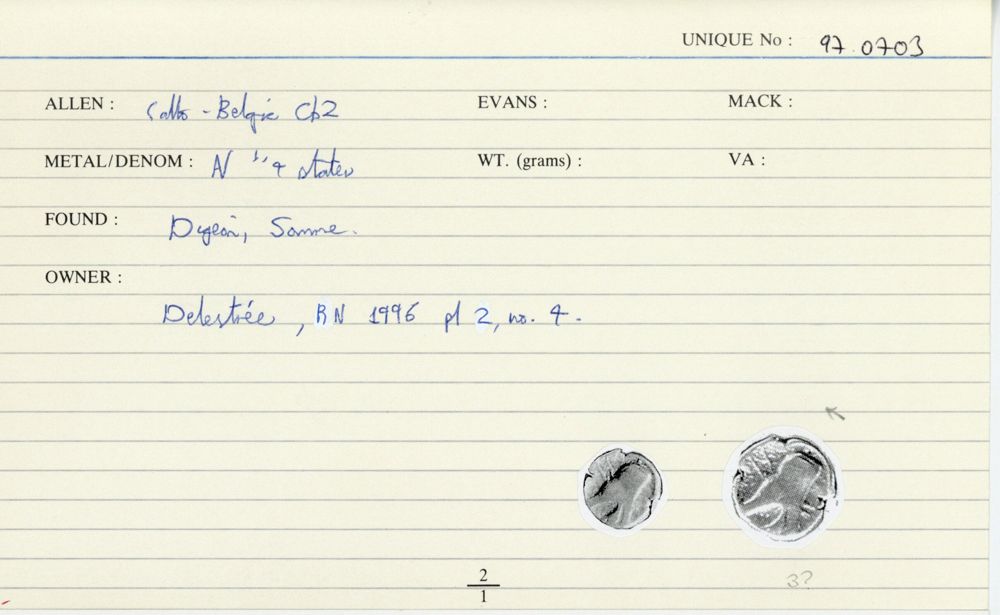 UNIQUE No : 97.0703
ALLEN : Gallo-Belgic Cb2 EVANS : MACK :
METAL/DENOM : N 1/4 stater WT. (grams) : VA :
FOUND : Digeon, Somme.
OWNER :
Delestrée, RN 1996 pl 2, no. 4.
2
1
3?